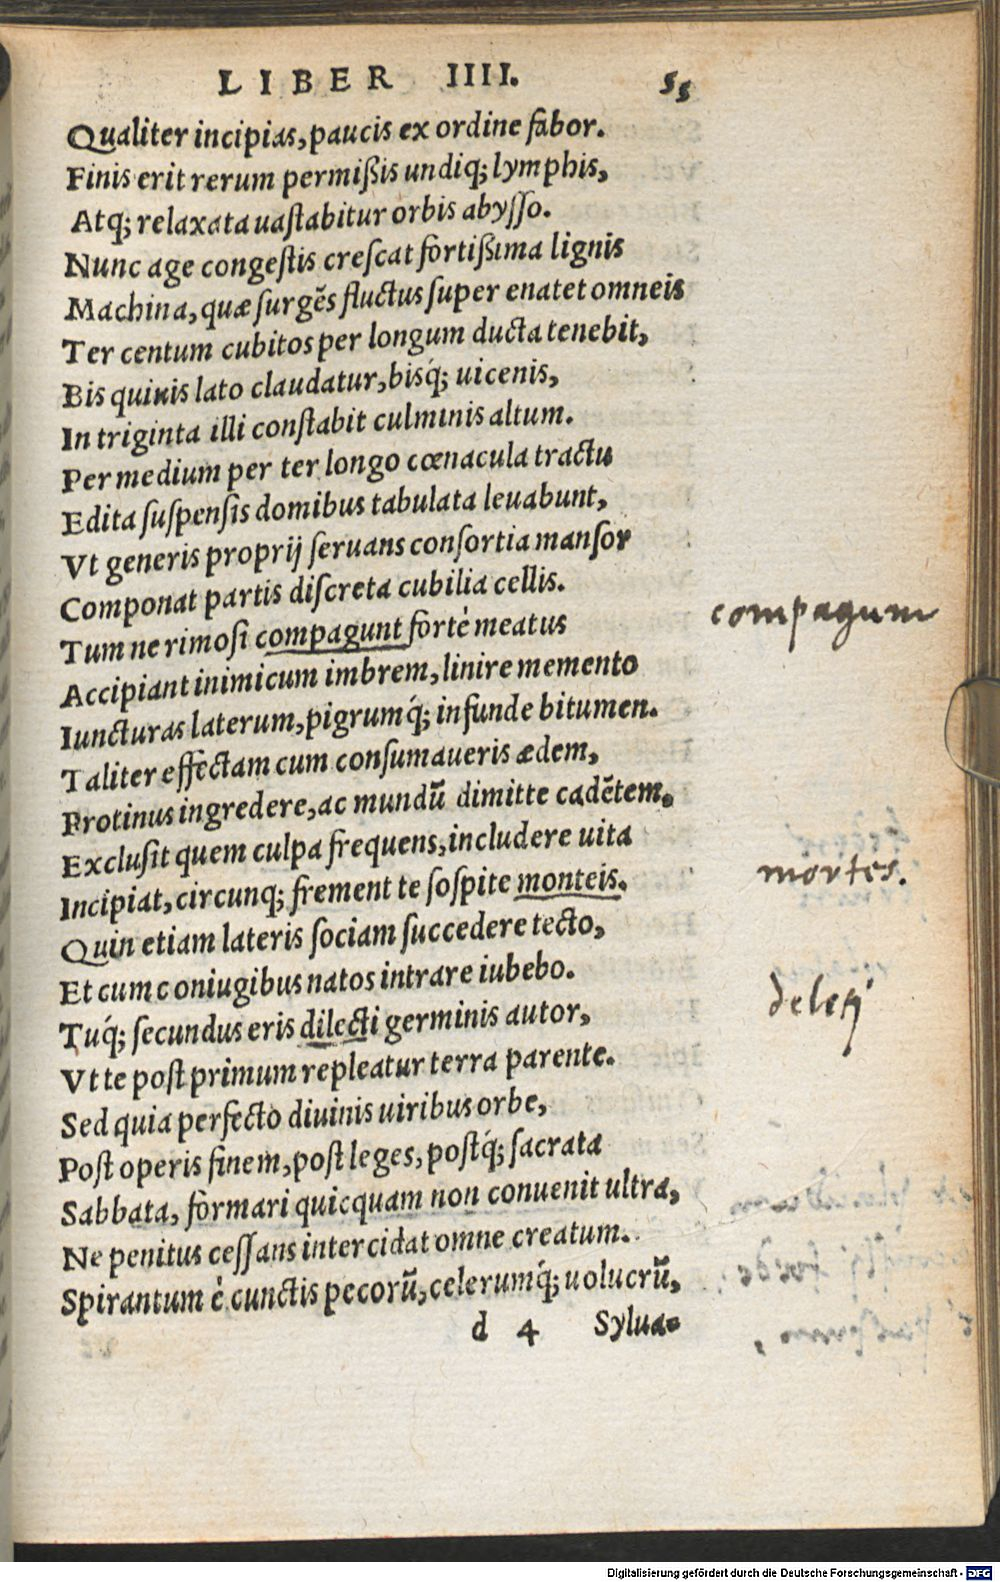 LIBER IIII. 55
Qualiter incipias, paucis ex ordine fabor.
Finis erit rerum permißis undiq; lymphis,
Atq; relaxata uaſtabitur orbis abyſſo.
Nunc age congeſtis creſcat fortißima lignis
Machina, quæ ſurgēs fluctus ſuper enatet omneis
Ter centum cubitos per longum ducta tenebit,
Bis quinis lato claudatur, bisq́; uicenis,
In triginta illi conſtabit culminis altum.
Per medium per ter longo cœnacula tractu
Edita ſuſpenſis domibus tabulata leuabunt,
Vt generis proprij ſeruans conſortia manſor
Componat partis diſcreta cubilia cellis.
Tum ne rimoſi compagunt fortè meatus compagum
Accipiant inimicum imbrem, linire memento
Iuncturas laterum, pigrumq́; infunde bitumen.
Taliter effectam cum conſumaueris ædem,
Protinus ingredere, ac mundū dimitte cadētem.
Excluſit quem culpa frequens, includere uita
Incipiat, circunq; frement te ſoſpite monteis. mortes.
Quin etiam lateris ſociam ſuccedere tecto,
Et cum coniugibus natos intrare iubebo.
Tuq́; ſecundus eris dilecti germinis autor, deleti
Vt te poſt primum repleatur terra parente.
Sed quia perfecto diuinis uiribus orbe,
Poſt operis finem, poſt leges, poſtq́; ſacrata
Sabbata, formari quicquam non conuenit ultra,
Ne penitus ceſſans intercidat omne creatum.
Spirantum è cunctis pecorū, celerumq́; uolucrū,
d 4 Sylua-
Digitalisierung gefördert durch die Deutsche Forschungsgemeinschaft - DFG